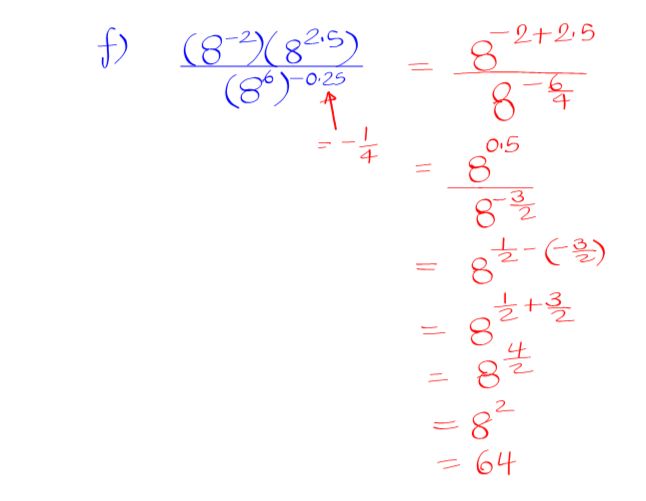 f) (8^{-2})(8^{2.5}) / (8^6)^{-0.25} = 8^{-2+2.5} / 8^{-6/4}
= -1/4
= 8^{0.5} / 8^{-3/2}
= 8^{1/2 - (-3/2)}
= 8^{1/2 + 3/2}
= 8^{4/2}
= 8^2
= 64